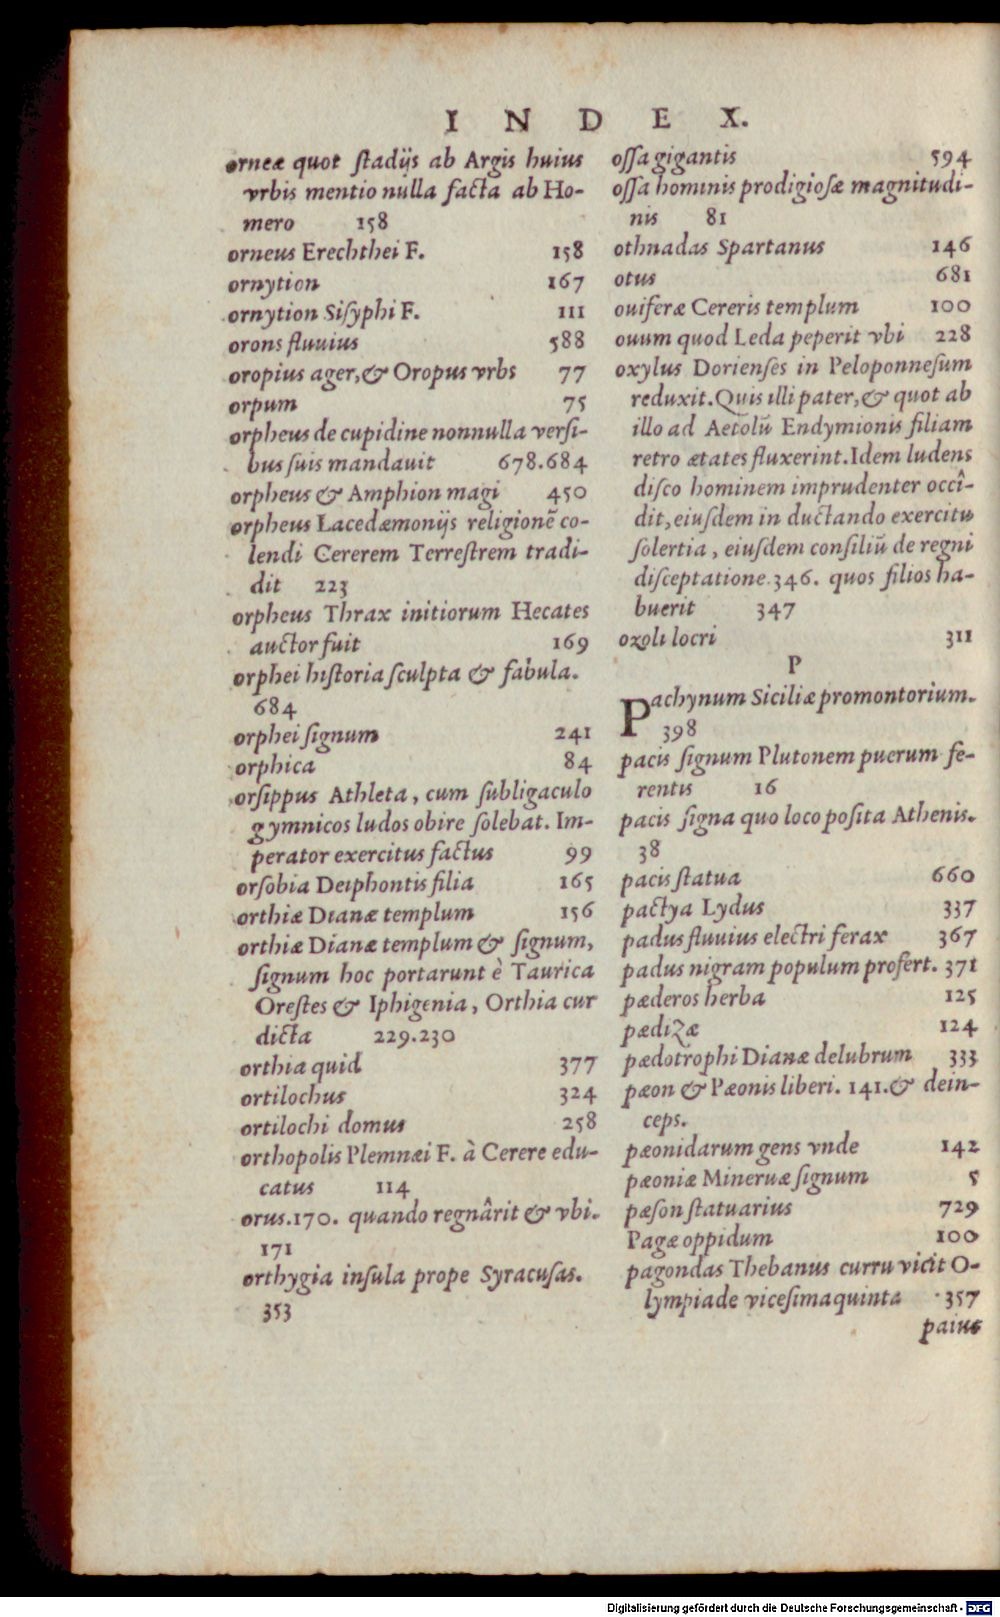 INDEX.
orneæ quot ſtadijs ab Argis huius
vrbis mentio nulla facta ab Ho-
mero 158
orneus Erechthei F. 158
ornytion 167
ornytion Siſyphi F. 111
orons fluuius 588
oropius ager,& Oropus vrbs 77
orpum 75
orpheus de cupidine nonnulla verſi-
bus ſuis mandauit 678.684
orpheus & Amphion magi 450
orpheus Lacedæmonijs religionē co-
lendi Cererem Terreſtrem tradi-
dit 223
orpheus Thrax initiorum Hecates
auctor fuit 169
orphei hiſtoria ſculpta & fabula.
684
orphei ſignum 241
orphica 84
orſippus Athleta, cum ſubligaculo
gymnicos ludos obire ſolebat. Im-
perator exercitus factus 99
orſobia Deiphontis filia 165
orthiæ Dianæ templum 156
orthiæ Dianæ templum & ſignum,
ſignum hoc portarunt è Taurica
Oreſtes & Iphigenia, Orthia cur
dicta 229.230
orthia quid 377
ortilochus 324
ortilochi domus 258
orthopolis Plemnæi F. à Cerere edu-
catus 114
orus.170. quando regnârit & vbi.
171
orthygia inſula prope Syracuſas.
353
oſſa gigantis 594
oſſa hominis prodigioſæ magnitudi-
nis 81
othnadas Spartanus 146
otus 681
ouiferæ Cereris templum 100
ouum quod Leda peperit vbi 228
oxylus Dorienſes in Peloponneſum
reduxit. Quis illi pater,& quot ab
illo ad Aetolū Endymionis filiam
retro ætates fluxerint. Idem ludens
diſco hominem imprudenter occî-
dit, eiuſdem in ductando exercitu
ſolertia, eiuſdem conſiliū de regni
diſceptatione.346. quos filios ha-
buerit 347
ozoli locri 311
P
Pachynum Siciliæ promontorium.
398
pacis ſignum Plutonem puerum fe-
rentis 16
pacis ſigna quo loco poſita Athenis.
38
pacis ſtatua 660
pactya Lydus 337
padus fluuius electri ferax 367
padus nigram populum profert. 371
pæderos herba 125
pædizæ 124
pædotrophi Dianæ delubrum 333
pæon & Pæonis liberi. 141.& dein-
ceps.
pæonidarum gens vnde 142
pæoniæ Mineruæ ſignum 5
pæſon ſtatuarius 729
Pagæ oppidum 100
pagondas Thebanus curru vicit O-
lympiade viceſima quinta 357
paius
Digitalisierung gefördert durch die Deutsche Forschungsgemeinschaft - DFG